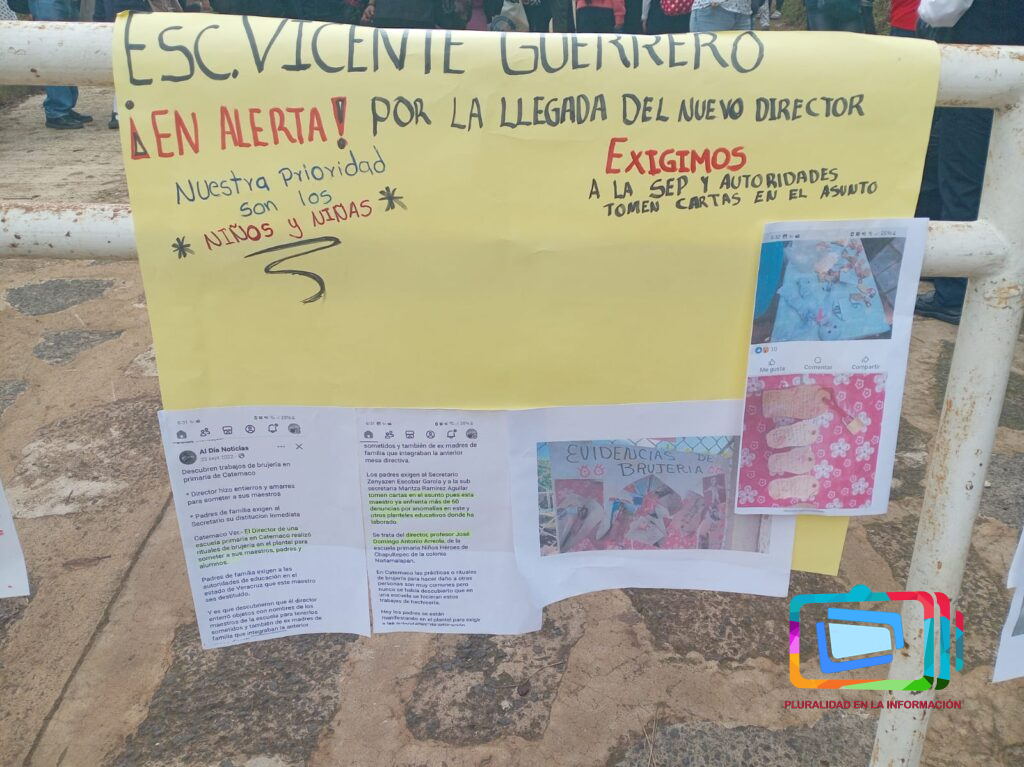 ESC. VICENTE GUERRERO
¡EN ALERTA! POR LA LLEGADA DEL NUEVO DIRECTOR
Nuestra Prioridad
son los
* NIÑOS y NIÑAS *
EXIGIMOS
A LA SEP Y AUTORIDADES
TOMEN CARTAS EN EL ASUNTO
Me gusta Comentar Compartir
Al Día Noticias
Descubren trabajos de brujería en
primaria de Catemaco
* Director hizo entierros y amarres
para someter a sus maestros
- Padres de familia exigen al
Secretario su distitucion inmediata
Catemaco Ver.- El Director de una
escuela primaria en Catemaco realizó
rituales de brujería en el plantel para
someter a sus maestros, padres y
alumnos.
Padres de familia exigen a las
autoridades de educación en el
estado de Veracruz que este maestro
sea destituido.
Y es que descubrieron que él director
enterró objetos con nombres de los
maestros de la escuela para tenerlos
sometidos y también de ex madres de
familia que integraban la anterior
sometidos y también de ex madres de
familia que integraban la anterior
mesa directiva.
Los padres exigen al Secretario
Zenyazen Escobar García y a la sub
secretaria Maritza Ramirez Aguilar
tomen cartas en el asunto pues esta
maestro ya enfrenta más de 60
denuncias por anomalías en este y
otros planteles educativos donde ha
laborado.
Se trata del director, profesor José
Domingo Antonio Arreola, de
la escuela primaria Niños Héroes de
Chapultepec de la colonia
Nixtamalapan.
En Catemaco las prácticas o rituales
de brujería para hacer daño a otras
personas son muy comunes pero
nunca se había descubierto que en
una escuela se hicieran estos
trabajos de hechicería.
Hoy los padres se están
manifestando en el plantel para exigir
EVIDENCIAS DE
BRUJERIA
PLURALIDAD EN LA INFORMACIÓN